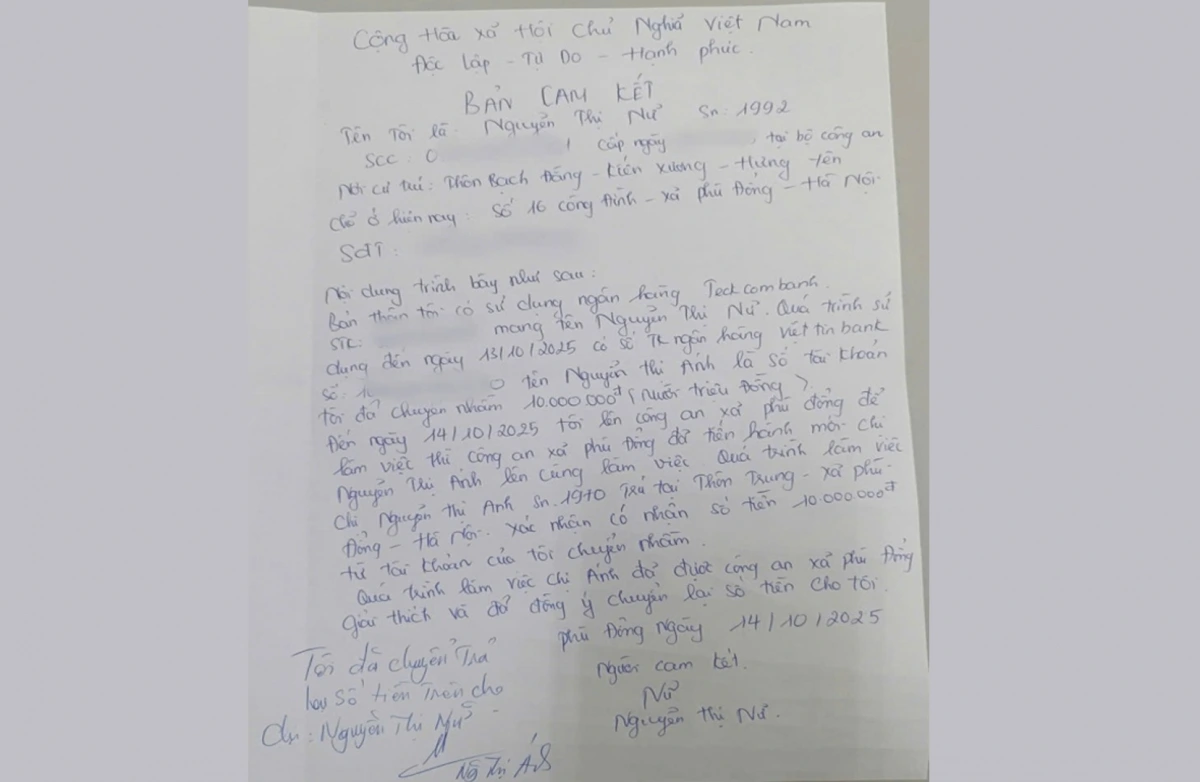 Cộng Hòa Xã Hội Chủ Nghĩa Việt Nam
Độc lập - Tự Do - Hạnh phúc.
BẢN CAM KẾT
Tên Tôi là: Nguyễn Thị Nữ Sn: 1992
SCC: 0 cấp ngày , tại bộ công an
Nơi cư trú: Thôn Bạch Đằng - Kiến Xương - Hưng Yên
Chỗ ở hiện nay: Số 16 công Đình - xã phù Đổng - Hà Nội.
SđT:
Nội dung trình bày như sau:
Bản thân tôi có sử dụng ngân hàng Teckcombank.
STK: mang tên Nguyễn Thị Nữ. Quá trình sử
dụng đến ngày 13/10/2025 có số TK ngân hàng viettinbank
số: 10 0 tên Nguyễn thị Ánh là số tài khoản
tôi đã chuyển nhầm 10.000.000đ ( Mười triệu Đồng )
Đến ngày 14/10/2025 tôi lên công an xã phù đổng để
làm việc thì công an xã phù Đổng đã tiến hành mời chị
Nguyễn Thị Ánh lên cùng làm việc Quá trình làm việc
Chị Nguyễn thị Ánh Sn. 1970 Trú tại Thôn Trung - xã phù
Đổng - Hà Nội. xác nhận có nhận số tiền 10.000.000đ
từ tài khoản của tôi chuyển nhầm.
Quá trình làm việc chị Ánh đã được công an xã phù Đổng
giải thích và đã đồng ý chuyển lại số tiền cho tôi.
phù Đổng Ngày 14/10/2025
Người cam kết.
Nữ
Nguyễn thị Nữ.
Tôi đã chuyển Trả
lại Số tiền Trên cho
chị: Nguyễn Thị Nữ
Ng Thị Ánh